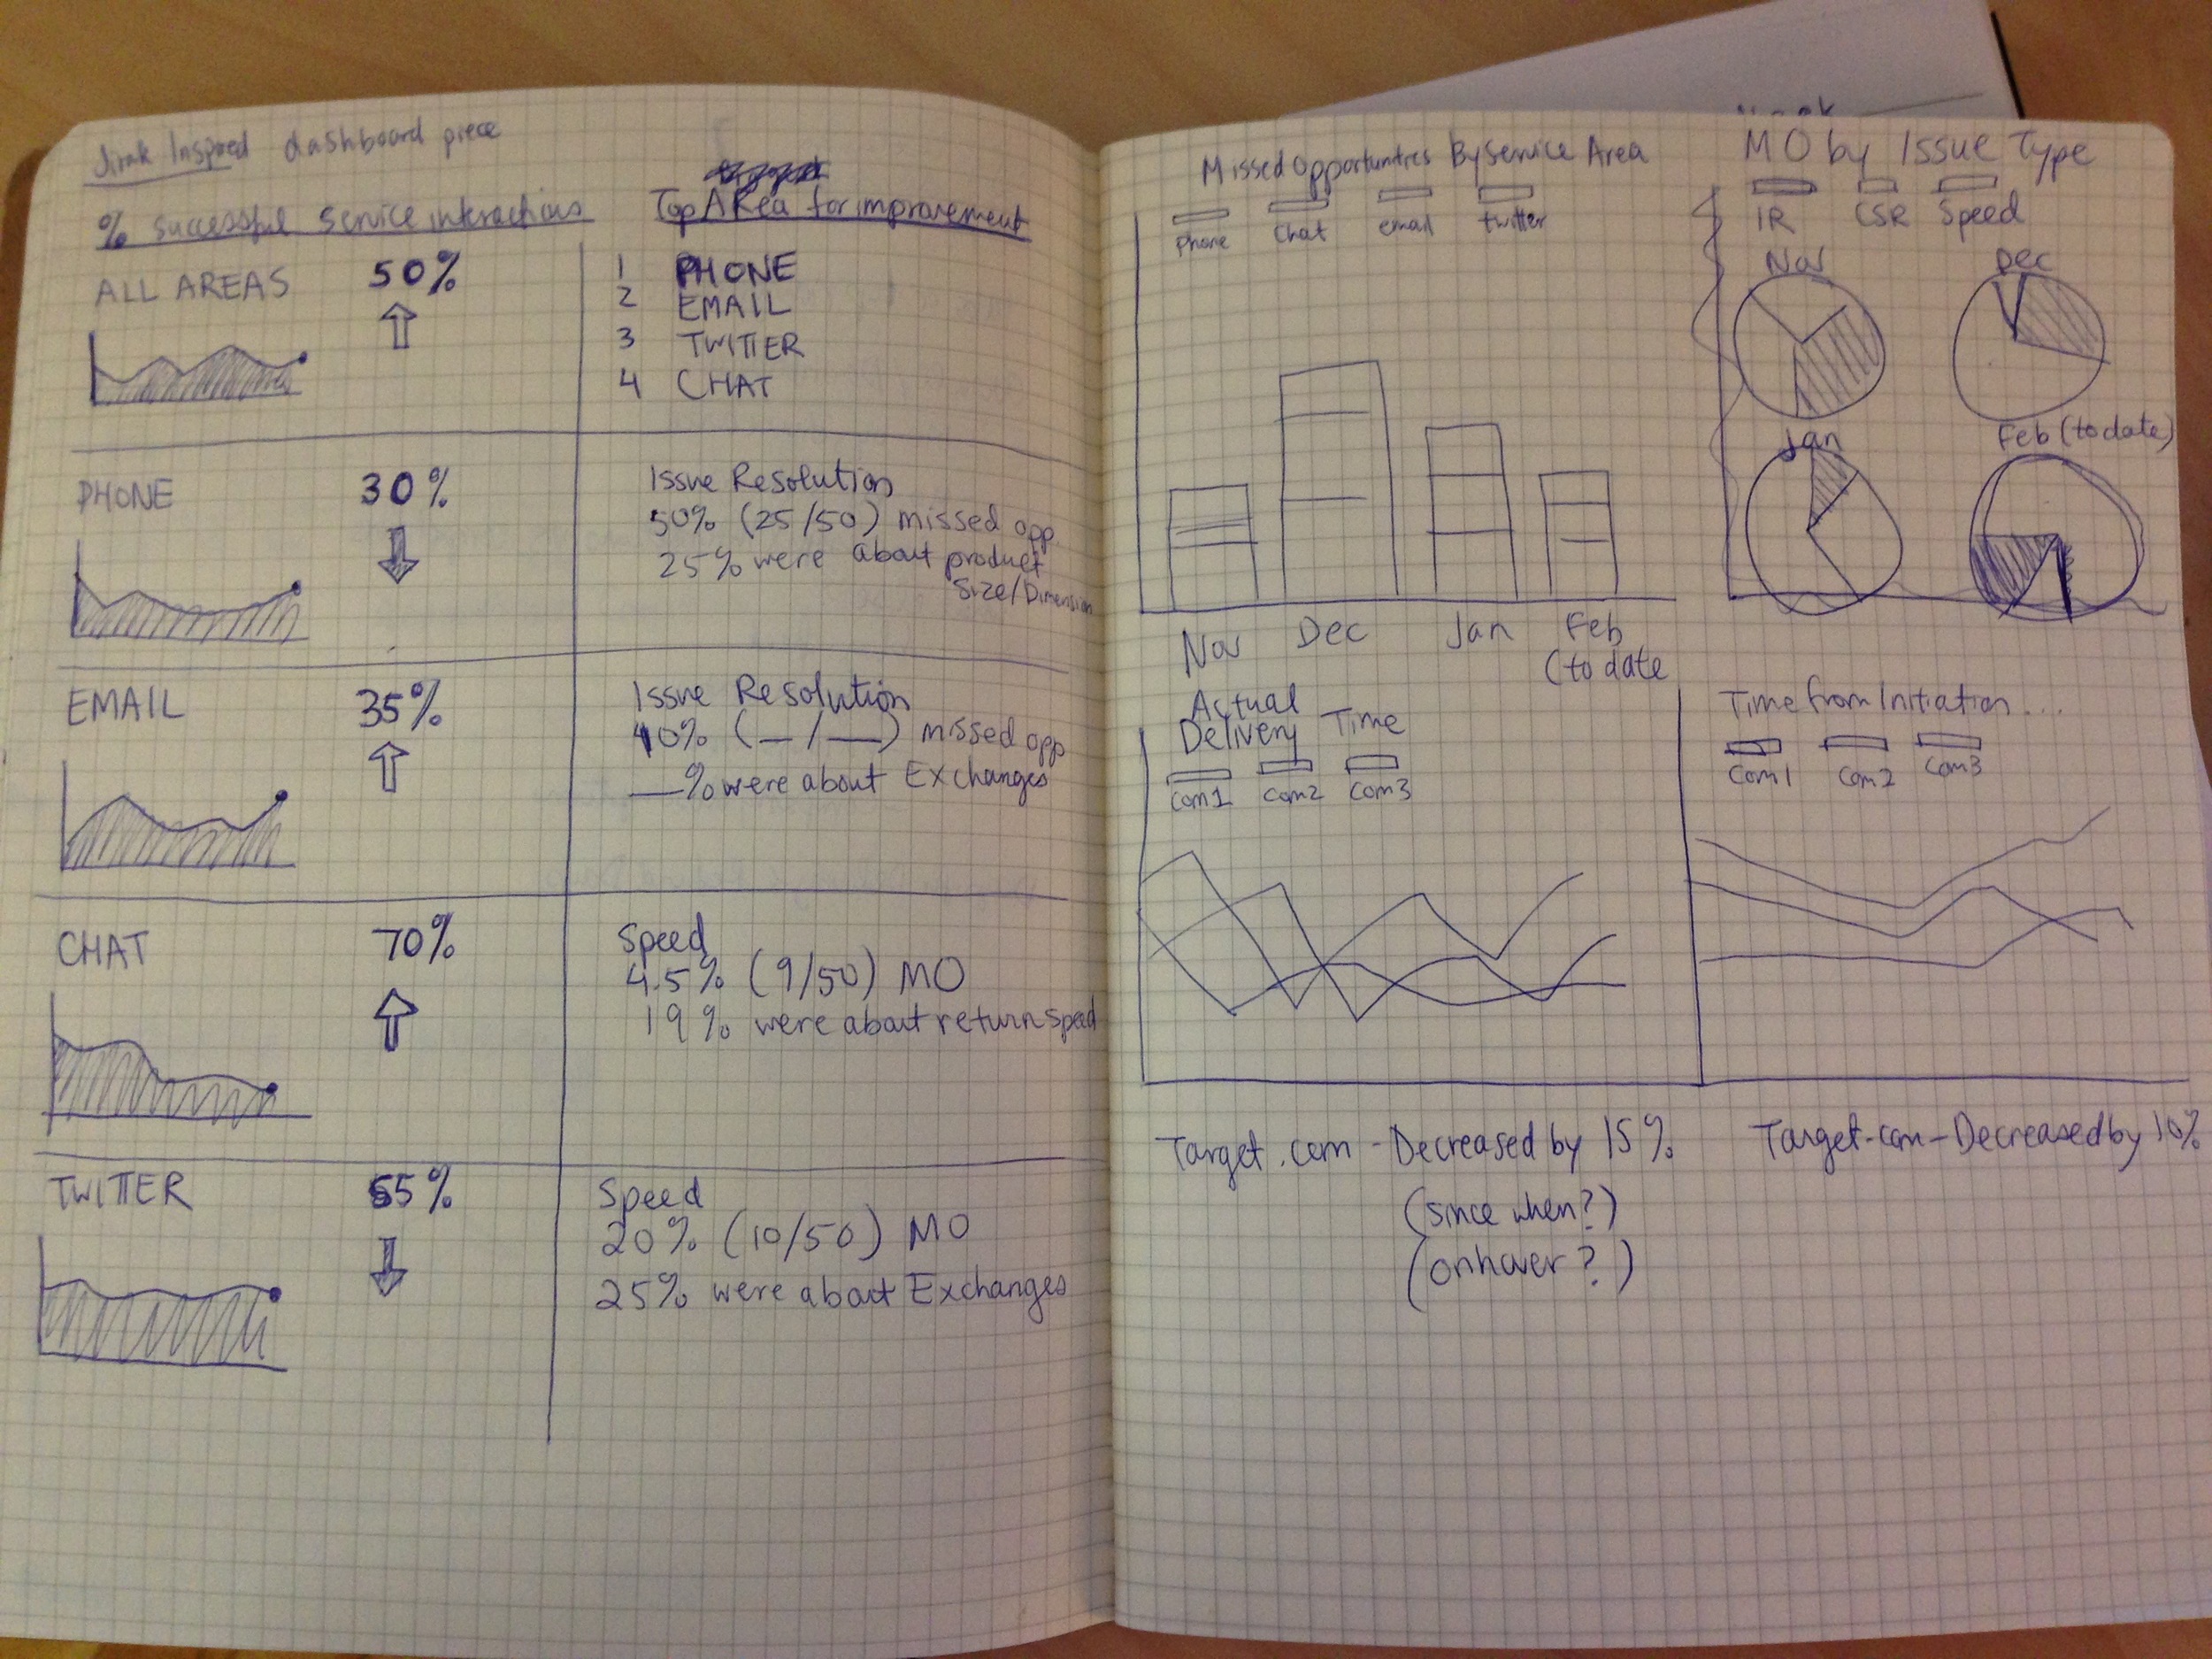 Inspired dashboard piece
% successful service interactions
Top Area for improvement
ALL AREAS 50%
1 PHONE
2 EMAIL
3 TWITTER
4 CHAT
PHONE 30%
Issue Resolution
50% (25/50) missed opp
25% were about product
Size/Dimension
EMAIL 35%
Issue Resolution
40% (__/__) missed opp
__% were about Exchanges
CHAT 70%
Speed
4.5% (9/50) MO
19% were about return speed
TWITTER 65%
Speed
20% (10/50) MO
25% were about Exchanges
Missed Opportunities By Service Area
Phone Chat email twitter
Nov Dec Jan Feb
(to date
MO by Issue Type
IR CSR Speed
Nov Dec
Jan Feb (to date)
Actual
Delivery Time
Com1 Com2 Com3
Time from Initiation...
Com1 Com2 Com3
Target.com - Decreased by 15%
(since when?)
(on hover?)
Target.com - Decreased by 10%